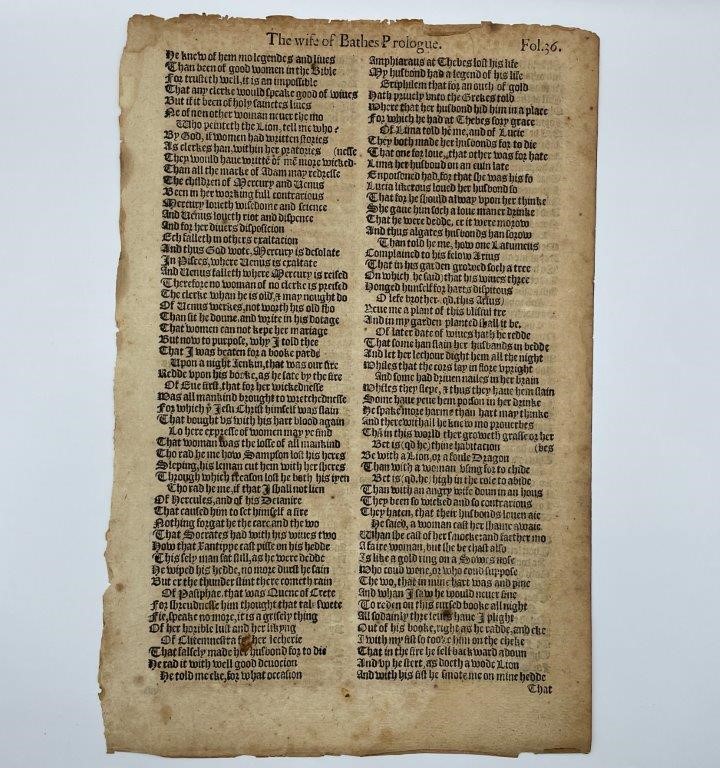 The wife of Bathes Prologue.
Fol.36.
He knew of hem mo legendes and liues
Than been of good women in the Bible
For trusteth well, it is an impossible
That any clerke would speake good of wiues
But if it been of holy sainctes liues
Ne of nen other woman neuer the mo
Who peinteth the Lion, tell me who?
By God, if women had written stories
As clerkes han, within her oratories
They would haue writtē of mē more wicked- (nesse
Than all the marke of Adam may redresse
The children of Mercury and Uenus
Been in her working full contrarious
Mercury loueth wisedome and science
And Uenus loueth riot and dispence
And for her diuers disposition
Ech falleth in others exaltation
And thus God wote, Mercury is desolate
In Pisces, where Uenus is exaltate
And Uenus falleth where Mercury is reised
Therefore no woman of no clerke is preised
The clerke whan he is old, & may nought do
Of Uenus werkes, not worth his old sho
Than sit he doune, and write in his dotage
That women can not kepe her mariage
But now to purpose, why I told thee
That I was beaten for a booke parde
Upon a night Jenkin, that was our sire
Redde vpon his booke, as he sate by the fire
Of Eue first, that for her wickednesse
Was all mankind brought to wretchednesse
For which ẏ Jesu Christ himself was slain
That bought vs with his hart blood again
Lo here expresse of women may ye find
That woman was the losse of all mankind
Tho rad he me how Sampson lost his heres
Sleping, his leman cut hem with her sheres
Through which treason lost he both his iyen
Tho rad he me, if that I shall not lien
Of Hercules, and of his Deianire
That caused him to set himself a fire
Nothing forgat he the care and the wo
That Socrates had with his wiues two
How that Xantippe cast pisse on his hedde
This sely man sat still, as he were dedde
He wiped his hedde, no more durst he sain
But er the thunder stint there cometh rain
Of Pasiphae, that was Quene of Crete
For shreudnesse him thought that tale swete
Fie, speake no more, it is a grisely thing
Of her horrible lust and her likyng
Of Clitemnestra for her lecherie
That falsely made her husbond for to die
He rad it with well good deuocion
He told me eke, for what occasion
Amphiaraus at Thebes lost his life
My husbond had a legend of his life
Eriphilem that for an ouch of gold
Hath priuely vnto the Grekes told
Where that her husbond hid him in a place
For which he had at Thebes sory grace
Of Lima told he me, and of Lucie
They both made her husbonds for to die
That one for loue, that other was for hate
Lima her husbond on an euin late
Enpoisoned had, for that she was his fo
Lucia likerous loued her husbond so
That for he should alway vpon her thinke
She gaue him soch a loue maner drinke
That he were dedde, er it were morow
And thus algates husbonds han sorow
Than told he me, how one Latumeus
Complained to his felow Arius
That in his garden growed soch a tree
On which he said, that his wiues three
Honged himself for harts dispitous
O lefe brother qd. this Arius
Yeue me a plant of this blisful tre
And in my garden planted shall it be.
Of later date of wiues hath he redde
That some han slain her husbands in bedde
And let her lechour dight hem all the night
Whiles that the cors lay in flore vpright
And some had driuen nailes in her brain
Whiles they slepe, & thus they haue hem slain
Some haue yeue hem poison in her drinke
He spake more harme than hart may thinke
And therewithall he knew mo prouerbes
Thā in this world ther groweth grasse or her (bes
Bet is (qd he) thine habitation
Be with a Lion, or a foule Dragon
Than with a woman vsing for to chide
Bet is (qd. he) high in the role to abide
Than with an angry wife doun in an hous
They been so wicked and so contrarious
They haten, that their husbonds louen aie
He saied, a woman cast her shame awaie
Whan she cast of her smocke: and farther mo
A faire woman, but she be chast also
Is like a gold ring on a Sowes nose
Who coud wene, or who coud suppose
The wo, that in mine hart was and pine
And whan I saw he would neuer fine
To reden on this cursed booke all night
All sodainly thre leaues haue I plight
Out of his booke, right as he radde, and eke
I with my fist so tooke him on the cheke
That in the fire he fell backward adoun
And vp he stert, as doeth a wode Lion
And with his fist he smote me on mine hedde
That